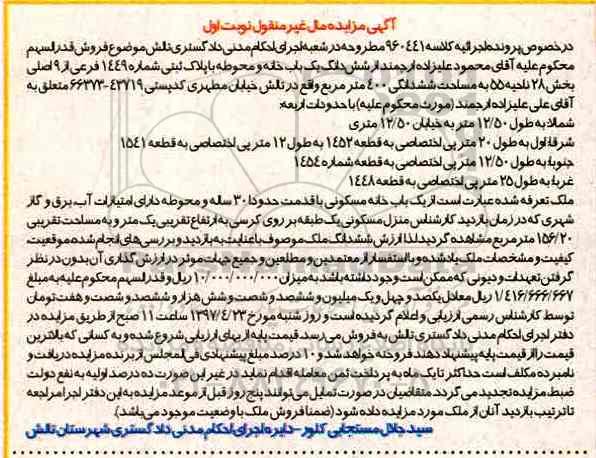 آگهی مزایده مال غیر منقول نوبت اول
در خصوص پرونده اجرائیه کلاسه ۹۶۰۴۴۱ مطروحه در شعبه اجرای احکام مدنی دادگستری تالش موضوع فروش قدرالسهم
محکوم علیه آقای محمود علیزاده ارجمند از شش دانگ یک باب خانه و محوطه با پلاک ثبتی شماره ۱۴۴۹ فرعی از ۹ اصلی
بخش ۲۸ ناحیه ۵۵ به مساحت ششدانگی ۴۰۰ متر مربع واقع در تالش خیابان مطهری کدپستی ۴۳۷۱۹-۶۶۳۷۳ متعلق به
آقای علی علیزاده ارجمند (مورث محکوم علیه) با حدودات اربعه:
شمالا: به طول ۱۲/۵۰ متر به خیابان ۱۲/۵۰ متری
شرقا: اول به طول ۲۰ متر پی اختصاصی به قطعه ۱۴۵۲ به طول ۱۲ متر پی اختصاصی به قطعه ۱۵۴۱
جنوبا: به طول ۱۲/۵۰ متر پی اختصاصی به قطعه شماره ۱۴۵۴
غربا: به طول ۲۵ متر پی اختصاصی به قطعه ۱۴۴۸
ملک تعرفه شده عبارت است از یک باب خانه مسکونی با قدمت حدودا ۳۰ ساله و محوطه دارای امتیازات آب، برق و گاز
شهری که در زمان بازدید کارشناس منزل مسکونی یک طبقه بر روی کرسی به ارتفاع تقریبی یک متر و به مساحت تقریبی
۱۵۶/۲۰ متر مربع مشاهده گردید لذا ارزش ششدانگ ملک موصوف با عنایت به بازدید و بررسی های انجام شده موقعیت،
کیفیت و مشخصات ملک یاد شده و با استفسار از معتمدین و مطلعین و جمیع جهات موثر در ارزش گذاری آن بدون در نظر
گرفتن تعهدات و دیونی که ممکن است وجود داشته باشد به میزان ۱۰/۰۰۰/۰۰۰/۰۰۰ ریال و قدرالسهم محکوم علیه به مبلغ
۱/۴۱۶/۶۶۶/۶۶۷ ریال معادل یکصد و چهل و یک میلیون و ششصد و شصت و شش هزار و ششصد و شصت و هفت تومان
توسط کارشناس رسمی ارزیابی و اعلام گردیده است و روز شنبه مورخ ۱۳۹۷/۴/۲۳ ساعت ۱۱ صبح از طریق مزایده در
دفتر اجرای احکام مدنی دادگستری تالش به فروش می رسد. قیمت پایه از بهای ارزیابی شروع شده و به کسانی که بالاترین
قیمت را از قیمت پایه پیشنهاد دهند فروخته خواهد شد و ۱۰ درصد مبلغ پیشنهادی فی المجلس از برنده مزایده دریافت و
نامبرده مکلف است حداکثر تا یک ماه به پرداخت ثمن معامله اقدام نماید در غیر این صورت ده درصد اولیه به نفع دولت
ضبط مزایده تجدید می گردد. متقاضیان در صورت تمایل می توانند پنج روز قبل از موعد مزایده به این دفتر اجرا مراجعه
تا ترتیب بازدید آنان از ملک مورد مزایده داده شود (ضمنا فروش ملک با وضعیت موجود می باشد).
سید جلال مستجابی کلور - دایره اجرای احکام مدنی دادگستری شهرستان تالش